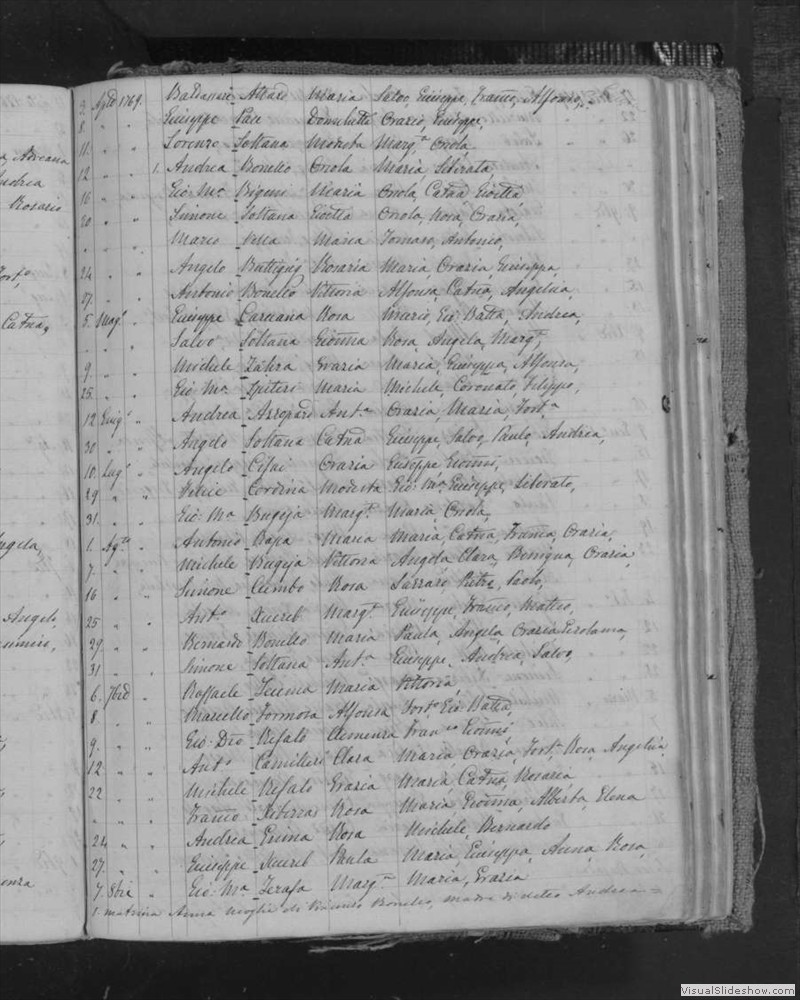 a, Adreana
Andrea
Rosario
Catna,
Angela,
Angelo,
2. Aple 1769. Baldassare Attard Maria Salvo, Giuseppe, Franco, Alfonso,
8. " " Giuseppe Pace Domchella Orazio, Giuseppe,
11. " " Lorenzo Soltana Modesta Marg.a Onola,
12 " " 1. Andrea Bonello Onola Maria, Liberata,
16 " " Gio Ma Bigeni Maria Onola, Catna Giovlla
20 " " Simone Soltana Giovlla Onola, Rosa, Grazia,
" " " Marco Vella Maria Tomaso, Antonio,
24 " " Angelo Buttigieg Rosaria Maria, Grazia Giuseppa,
27. " " Antonio Bonello Vittoria Alfonsa, Catna, Angelica,
5. Mag.o " Giuseppe Careana Rosa Mario, Gio Batta, Andrea,
" " " Salvo Soltana Gionna Rosa, Angela, Marg.a,
9 " " Michele Zahra Grazia Maria, Giuseppa, Alfonsa,
25. " " Gio Ma Spiteri Maria Michele, Coronato, Filippo,
12 Giug.o " Andrea Azzopard Ant.a Grazia, Maria, Fort.a
30 " " Angelo Soltana Catna Giuseppe, Salvo, Paulo, Andrea,
10. Lug.o " Angelo Cifai Grazia Giuseppe Gionni,
29 " " Felice Cordina Modesta Gio Ma, Giuseppe, Liberato,
31. " " Gio Ma Bugeja Marg.a Maria, Onola,
1. Ag.to " Antonio Bapa Maria Maria, Catna, Franca, Grazia,
7. " " Michele Bugeja Vittoria Angela Clara, Benigna, Grazia,
16 " " Simone Cumbo Rosa Lazzaro, Pietro, Paolo,
25 " " Ant.o Xuereb Marg.a Giuseppe, Franco, Matteo,
29. " " Bernardo Bonello Maria Paula, Angela, Grazia Gerolama,
31 " " Simone Soltana Ant.a Giuseppe, Andrea, Salvo,
6. 7bre " Raffaele Teuma Maria Vittoria,
8. " " Marcello Formosa Alfonsa Fort.o Gio Batta,
9. " " Gio: Dro Refalo Clemenza Fran.co Gionni,
12. " " Ant.o Camilleri Clara Maria Grazia, Fort.a Rosa, Angelica,
22 " " Michele Refalo Grazia Maria, Catna, Rosaria
" " " Franco Xiberras Rosa Maria Gionna, Alberta, Elena
24 " " Andrea Grima Rosa Michele, Bernardo
27. " " Giuseppe Xuereb Paula Maria, Giuseppa, Anna, Rosa,
7. 8bre " Gio: Ma Zerafa Marg.a Maria, Grazia
1. matrina Anna moglie di Bonello, madre di detto Andrea =
VisualSlideshow.com